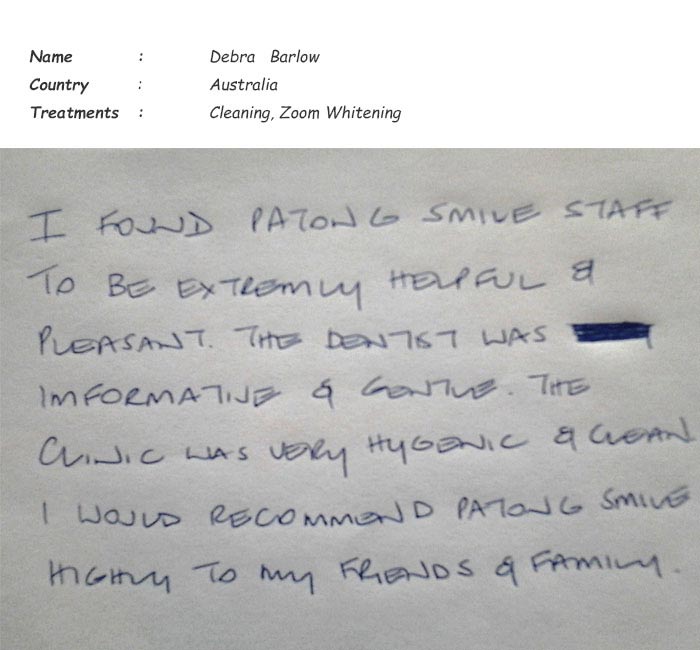 Name : Debra Barlow
Country : Australia
Treatments : Cleaning, Zoom Whitening
I FOUND PATONG SMILE STAFF
TO BE EXTREMLY HELPFUL &
PLEASANT. THE DENTIST WAS
IMFORMATIVE & GENTLE. THE
CLINIC WAS VERY HYGENIC & CLEAN
I WOULD RECOMMEND PATONG SMILE
HIGHLY TO MY FRIENDS & FAMILY.